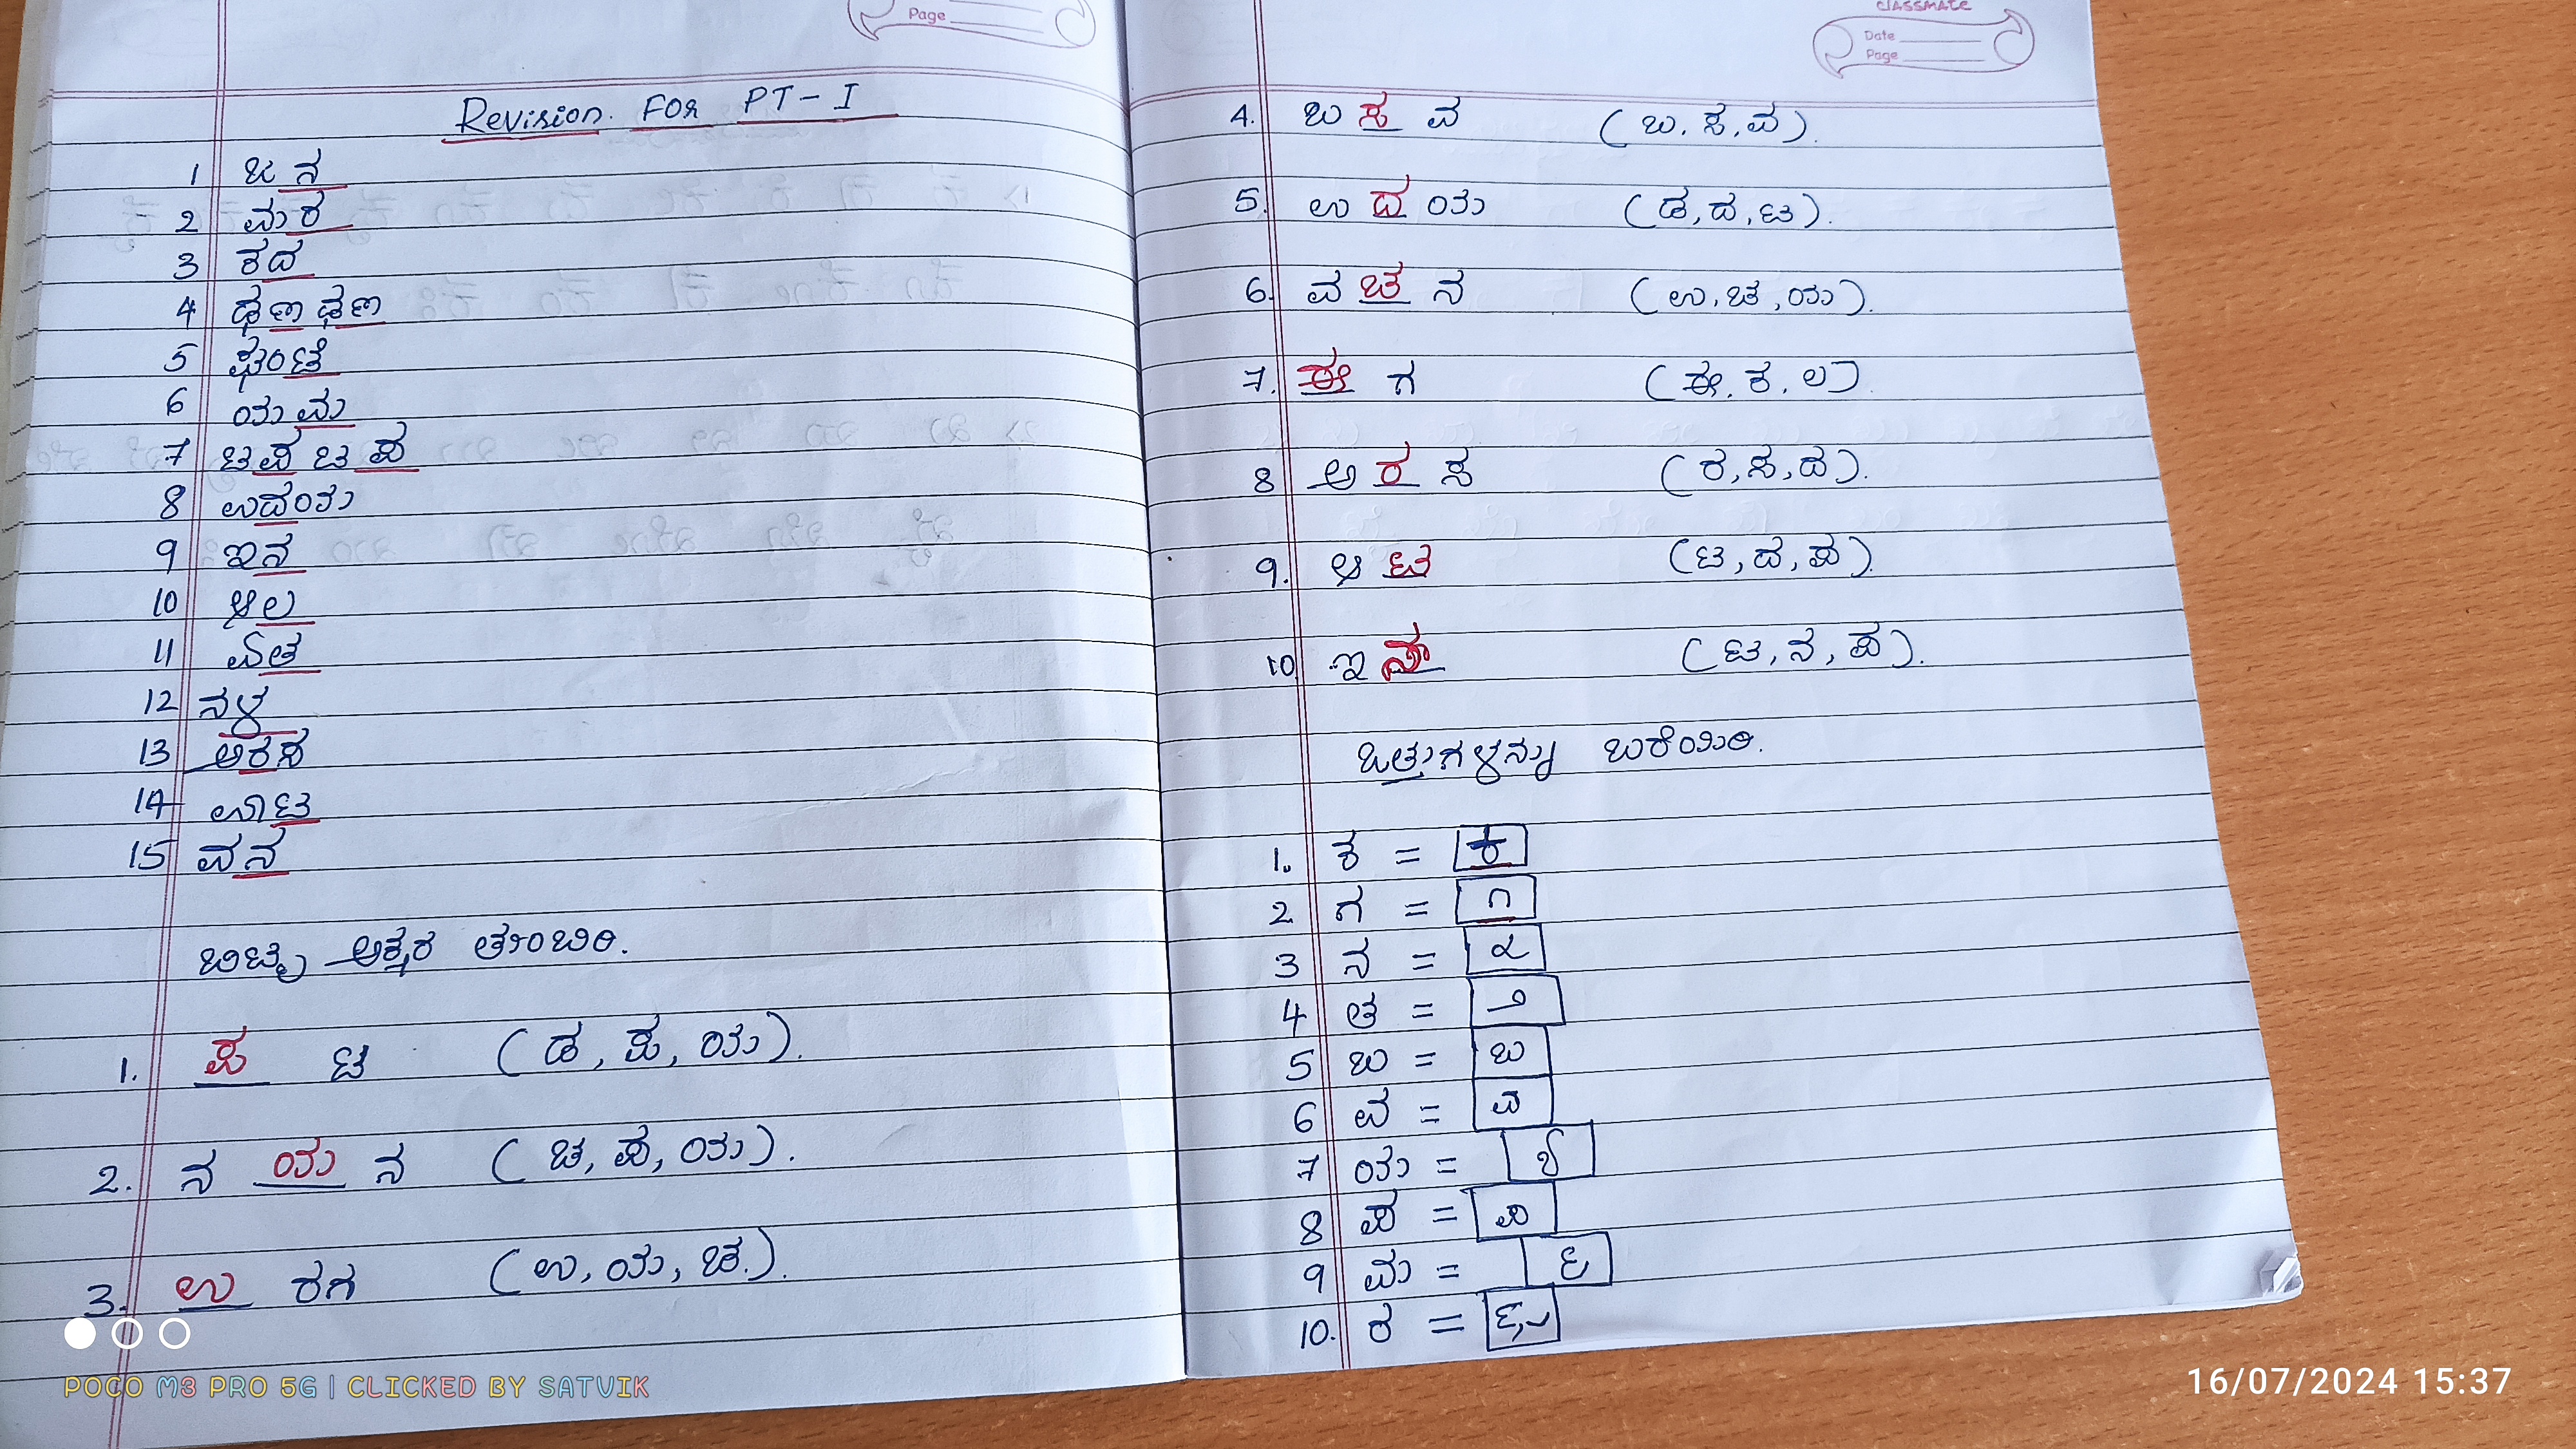 Page
Revision For PT-I
1 ಜನ
2 ಮರ
3 ಕದ
4 ಢಣಢಣ
5 ಘಂಟೆ
6 ಯಮ
7 ಟಪಟಪ
8 ಉದಯ
9 ಇನ
10 ಆಲ
11 ಏತ
12 ನಳ
13 ಅರಸ
14 ಊಟ
15 ವನ
ಬಿಟ್ಟ ಅಕ್ಷರ ತುಂಬಿರಿ.
1. ಪ ಟ (ಡ, ಪ, ಯ).
2. ನ ಯ ನ (ಚ, ಪ, ಯ).
3. ಉ ರಗ (ಉ, ಯ, ಚ.).
classmate
Date
Page
4. ಬ ಸ ವ (ಬ, ಸ, ವ).
5. ಉ ದ ಯ (ಡ, ದ, ಟ).
6. ವ ಚ ನ (ಉ, ಚ, ಯ).
7. ಈ ಗ (ಈ, ಕ, ಲ).
8 ಅ ರ ಸ (ರ, ಸ, ದ).
9. ಆ ಟ (ಟ, ದ, ಪ).
10 ಇ (ಟ, ನ, ಪ).
ಒತ್ತುಗಳನ್ನು ಬರೆಯಿರಿ.
1. ಕ = ್ಕ
2 ಗ = ್ಗ
3 ನ = ್ನ
4 ತ = ್ತ
5 ಬ = ್ಬ
6 ವ = ್ವ
7 ಯ = ್ಯ
8 ಪ = ್ಪ
9 ಮ = ್ಮ
10. ರ =
POCO M3 PRO 5G | CLICKED BY SATVIK
16/07/2024 15:37